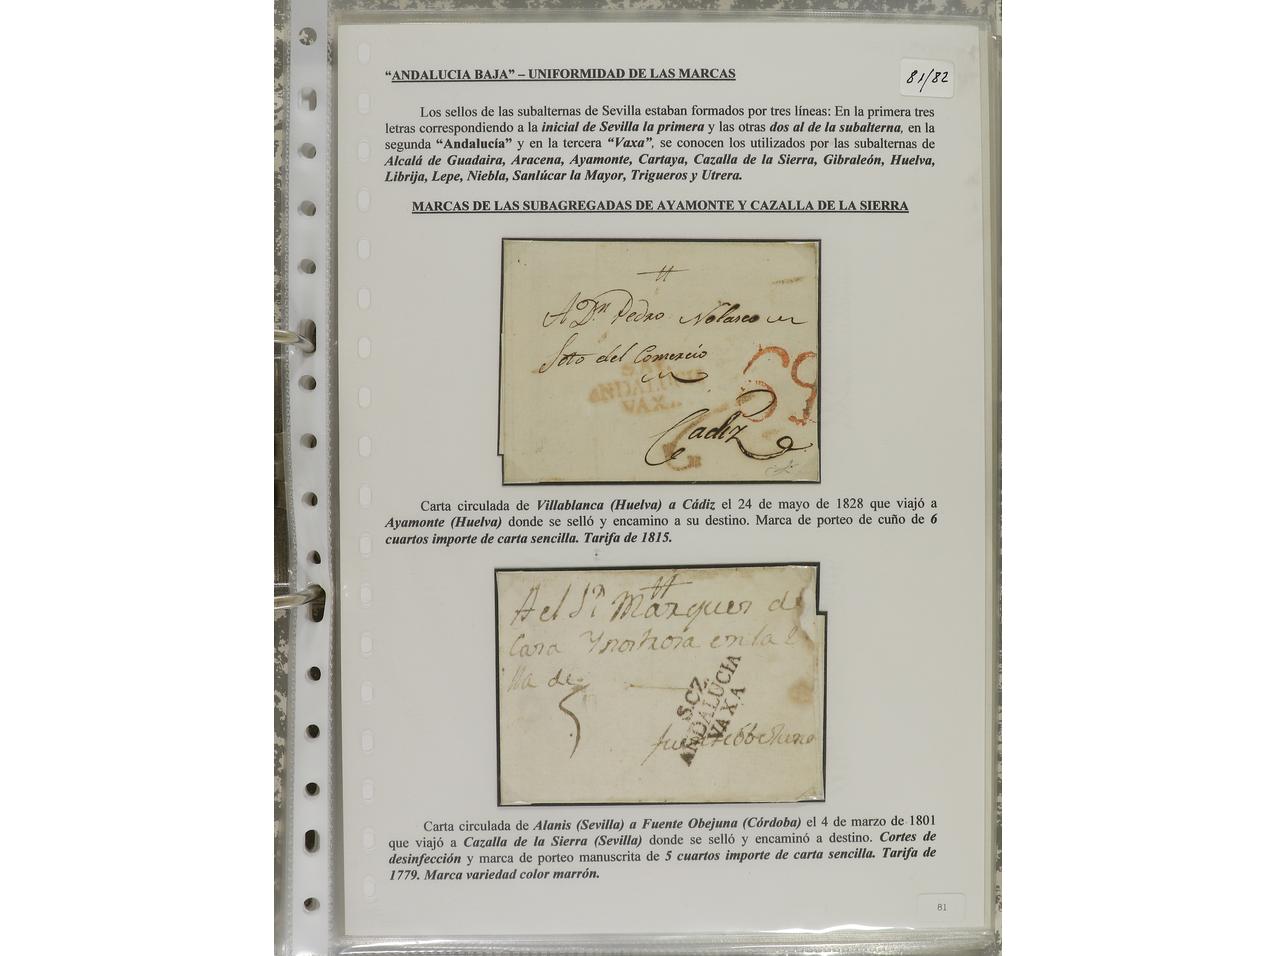 "ANDALUCIA BAJA" – UNIFORMIDAD DE LAS MARCAS
81/82
Los sellos de las subalternas de Sevilla estaban formados por tres líneas: En la primera tres
letras correspondiendo a la inicial de Sevilla la primera y las otras dos al de la subalterna, en la
segunda "Andalucía" y en la tercera "Vaxa", se conocen los utilizados por las subalternas de
Alcalá de Guadaira, Aracena, Ayamonte, Cartaya, Cazalla de la Sierra, Gibraleón, Huelva,
Librija, Lepe, Niebla, Sanlúcar la Mayor, Trigueros y Utrera.
MARCAS DE LAS SUBAGREGADAS DE AYAMONTE Y CAZALLA DE LA SIERRA
A Dn Pedro Nolasco
Soto del Comercio
S.AY.
ANDALUCIA
VAXA
Cadiz
Carta circulada de Villablanca (Huelva) a Cádiz el 24 de mayo de 1828 que viajó a
Ayamonte (Huelva) donde se selló y encamino a su destino. Marca de porteo de cuño de 6
cuartos importe de carta sencilla. Tarifa de 1815.
A el Sr Marques de
Casa en la
lla de
5
S.CZ.
ANDALUCIA
VAXA
fuente obejuna
Carta circulada de Alanis (Sevilla) a Fuente Obejuna (Córdoba) el 4 de marzo de 1801
que viajó a Cazalla de la Sierra (Sevilla) donde se selló y encaminó a destino. Cortes de
desinfección y marca de porteo manuscrita de 5 cuartos importe de carta sencilla. Tarifa de
1779. Marca variedad color marrón.
81